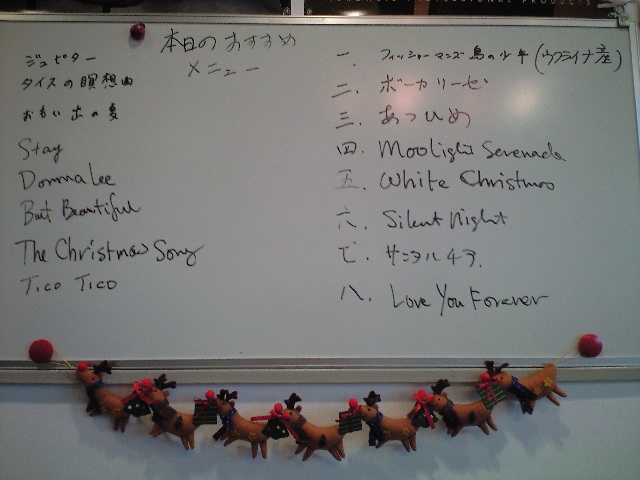 本日のおすすめ
メニュー
ジュピター
タイスの瞑想曲
おもい出の夏
Stay
Donna Lee
But Beautiful
The Christmas Song
Tico Tico
一. フィッシャーマンズ島の少年(ウクライナ産)
二. ボーカリーゼ
三. あつひめ
四. Moolight Serenade
五. White Christmas
六. Silent Night
七. サニタルチア.
八. Love You Forever